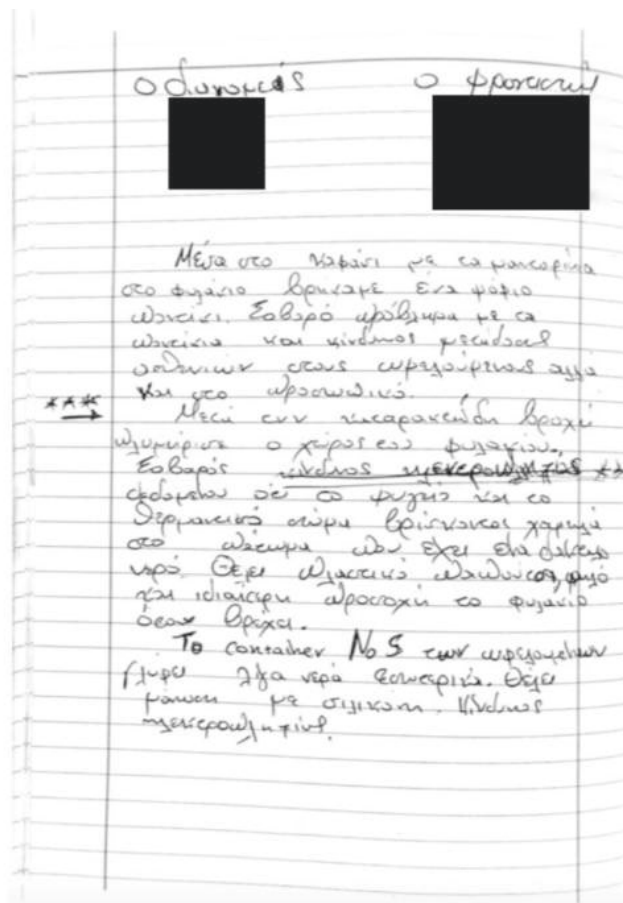 Ο διανομέας Ο φροντιστή
Μέσα στο καφάσι με τα μανταρίνια
στο φυλάκιο βρήκαμε ένα ψόφιο
ποντίκι. Σοβαρό πρόβλημα με τα
ποντίκια και κίνδυνος μετάδοσης
ασθενειών στους ωφελούμενους αλλά
και στο προσωπικό.
*** Μετά την καταρακτώδη βροχή
πλημμύρισε ο χώρος του φυλακίου.
Σοβαρός κίνδυνος ηλεκτροπληξίας **
δεδομένου ότι το ψυγείο και το
θερμαντικό σώμα βρίσκονται χαμηλά
στο πάτωμα που έχει ένα δάκτυλο
νερό. Θέλει πλαστικό
και ιδιαίτερη προσοχή το φυλάκιο
όταν βρέχει.
Το container No 5 των ωφελουμένων
λίγα νερά εσωτερικά. Θέλει
μόνωση με σιλικόνη. Κίνδυνος
ηλεκτροπληξίας.